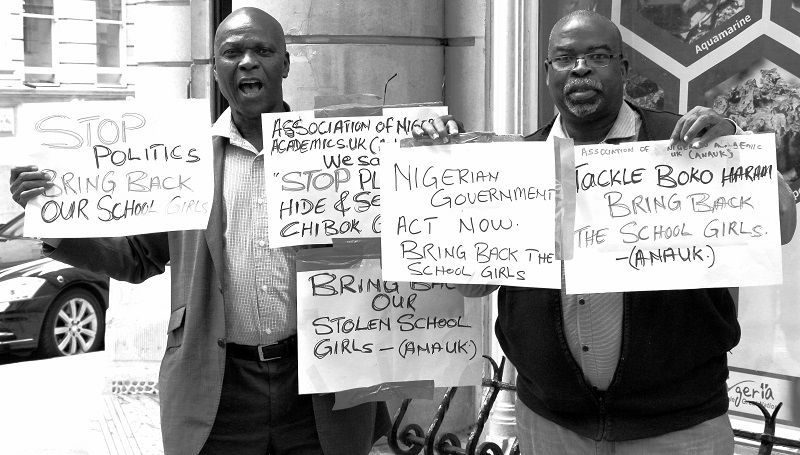 STOP
POLITICS
BRING BACK
OUR SCHOOL GIRLS
ASSOCIATION OF NIGER
ACADEMICS.UK (A
WE SA
"STOP PL
HIDE & SE
CHIBOK G
BRING BAC
OUR
STOLEN SCHOOL
GIRLS – (ANAUK.)
NIGERIAN
GOVERNMENT
ACT NOW.
BRING BACK THE
SCHOOL GIRLS
ASSOCIATION OF
UK (ANAUK)
TACKLE BOKO HARAM
BRING BACK
THE SCHOOL GIRLS.
– (ANAUK.)
Aquamarine
geria